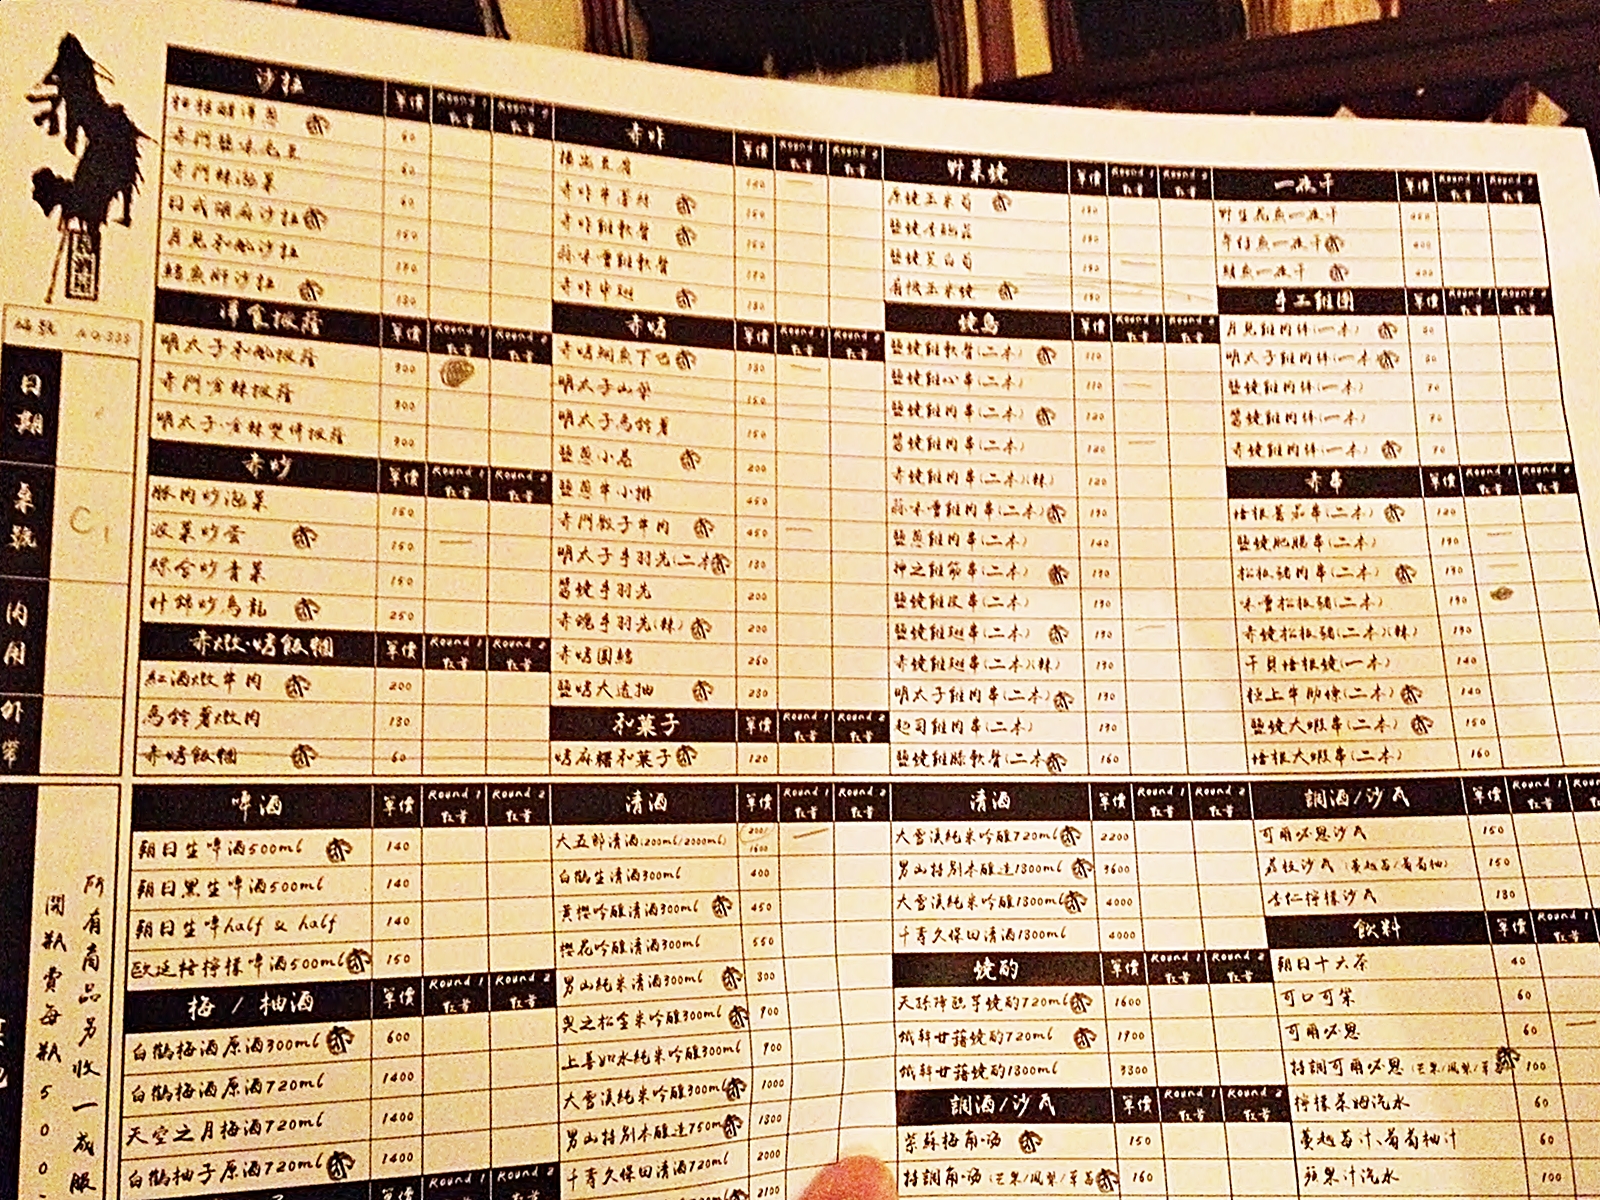 沙拉 單價 Round 1 數量 Round 2 數量
赤門鹽味毛豆
赤門辣泡菜 60
日式胡麻沙拉 150
月見和風沙拉 180
鮭魚卵沙拉 180
洋食披薩 單價 Round 1 數量 Round 2 數量
明太子和風披薩 300
赤門倉辣披薩 300
明太子·倉辣雙拼披薩 300
赤炒 單價 Round 1 數量 Round 2 數量
豚肉炒泡菜 150
菠菜炒蛋 150
綜合炒青菜 150
什錦炒烏龍 250
赤燉·烤飯糰 單價 Round 1 數量 Round 2 數量
紅酒燉牛肉 200
馬鈴薯燉肉 180
赤烤飯糰 60
赤炸 單價 Round 1 數量 Round 2 數量
揚出豆腐
赤炸牛蒡絲 150
赤炸雞軟骨 150
蒜味噌雞軟骨 180
赤炸中翅 180
赤烤 單價 Round 1 數量 Round 2 數量
赤烤鯛魚下巴 180
明太子山藥 150
明太子馬鈴薯 150
鹽蔥小卷 200
鹽蔥牛小排 450
赤門骰子牛肉 450
明太子手羽先(二本) 180
醬燒手羽先 200
赤魂手羽先(辣) 200
赤烤圓鱈 260
鹽烤大透抽 280
和菓子 單價 Round 1 數量 Round 2 數量
烤麻糬和菓子 120
野菜燒 單價 Round 1 數量 Round 2 數量
原燒玉米筍
鹽燒杏鮑菇
鹽燒茭白筍
燒烏 單價 Round 1 數量 Round 2 數量
鹽燒雞軟骨(二本) 110
鹽燒雞心串(二本) 110
鹽燒雞肉串(二本) 120
醬燒雞肉串(二本) 120
赤燒雞肉串(二本)(辣) 120
蒜味噌雞肉串(二本) 130
鹽蔥雞肉串(二本) 140
押之雞筋串(二本) 130
鹽燒雞皮串(二本) 130
鹽燒雞翅串(二本) 130
赤燒雞翅串(二本)(辣) 130
明太子雞肉串(二本) 130
起司雞肉串(二本) 130
鹽燒雞膝軟骨(二本) 160
一夜干 單價 Round 1 數量 Round 2 數量
野生花魚一夜干
竹筴魚一夜干 400
鯖魚一夜干 400
手工雞團 單價 Round 1 數量 Round 2 數量
月見雞肉伴(一本) 80
明太子雞肉伴(一本) 80
鹽燒雞肉伴(一本) 70
醬燒雞肉伴(一本) 70
赤燒雞肉伴(一本) 70
赤串 單價 Round 1 數量 Round 2 數量
培根番茄串(二本) 120
鹽燒肥腸串(二本) 130
松板豬肉串(二本) 130
味噌松板豬(二本) 130
赤燒松板豬(二本)(辣) 130
干貝培根燒(一本) 140
極上牛肋條(二本) 140
鹽燒大蝦串(二本) 150
培根大蝦串(二本) 160
酒屋
編號 NO:
日期
桌號 C1
內用
外帶
所有商品另收一成服
開瓶費每瓶500
啤酒 單價 Round 1 數量 Round 2 數量
朝日生啤酒500ml 140
朝日黑生啤酒500ml 140
朝日生啤half & half 140
歐廷格檸檬啤酒500ml 150
梅 / 柚酒 單價 Round 1 數量 Round 2 數量
白鶴梅酒原酒300ml 600
白鶴梅酒原酒720ml 1400
天空之月梅酒720ml 1400
白鶴柚子原酒720ml 1400
清酒 單價 Round 1 數量 Round 2 數量
大五郎清酒(200ml/2000ml) 200/1600
白鶴生清酒300ml 400
黃櫻吟釀清酒300ml 450
櫻花吟釀清酒300ml 550
男山純米清酒300ml 800
奧之松全米吟釀300ml 900
上善如水純米吟釀300ml 900
大雪溪純米吟釀300ml 1000
男山特別本釀造750ml 1800
千壽久保田清酒720ml 2000
2100
清酒 單價 Round 1 數量 Round 2 數量
大雪溪純米吟釀720ml 2200
男山特別本釀造1800ml 3600
大雪溪純米吟釀1800ml 4000
千壽久保田清酒1800ml 4000
燒酌 單價 Round 1 數量 Round 2 數量
天孫降臨芋燒酌720ml 1600
甘藷燒酌720ml 1900
甘藷燒酌1800ml 3300
調酒/沙瓦 單價 Round 1 數量 Round 2 數量
紫蘇梅角嗨 150
特調角嗨(芒果/鳳梨/草莓) 160
調酒/沙瓦 單價 Round 1 數量
可爾必思沙瓦 150
荔枝沙瓦 (蔓越莓/葡萄柚) 150
杏仁檸檬沙瓦 180
飲料 單價 Round 1 數量
朝日十六茶 40
可口可樂 60
可爾必思 60
特調可爾必思 (芒果/鳳梨/草莓) 100
檸檬萊姆汽水 60
蔓越莓汁、葡萄柚汁 60
蘋果汁汽水 100